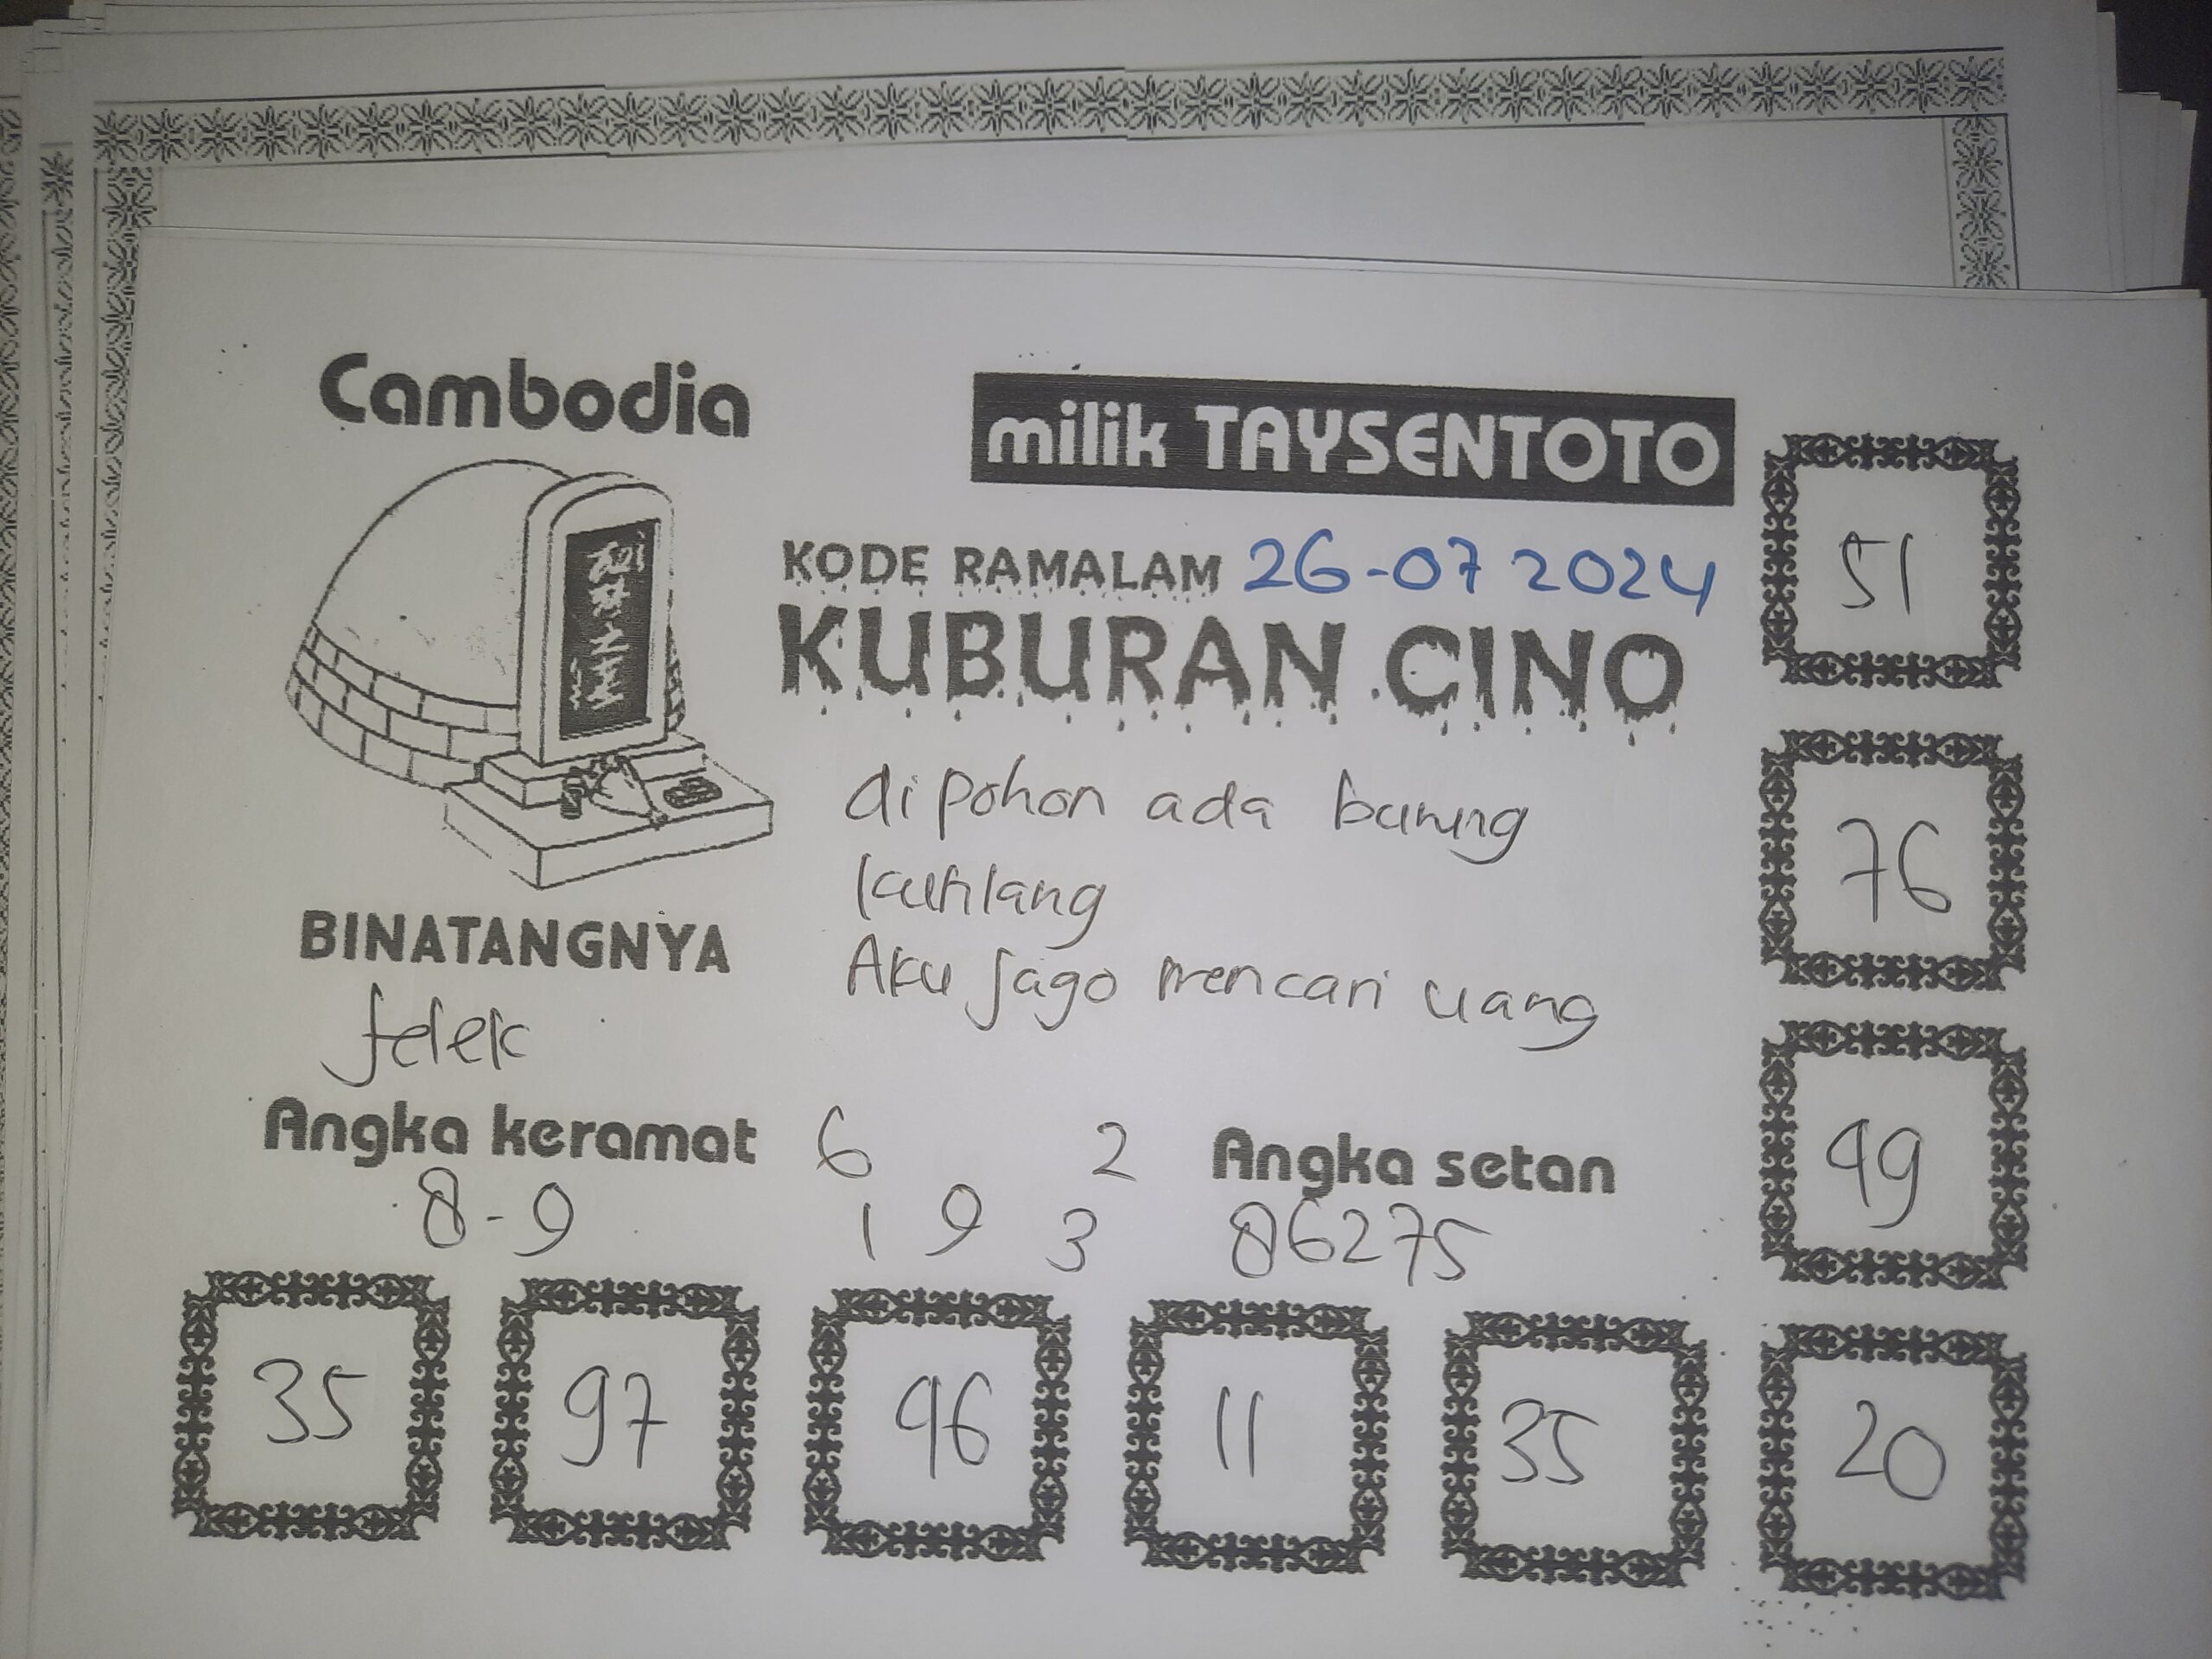 Cambodia
milik TAYSENTOTO
KODE RAMALAM 26-07 2024
KUBURAN CINO
di pohon ada burung
kutilang
Aku jago mencari uang
BINATANGNYA
jelek
Angka keramat
8-9
6 2
1 9 3
Angka setan
86275
51
76
49
20
35
97
96
11
35